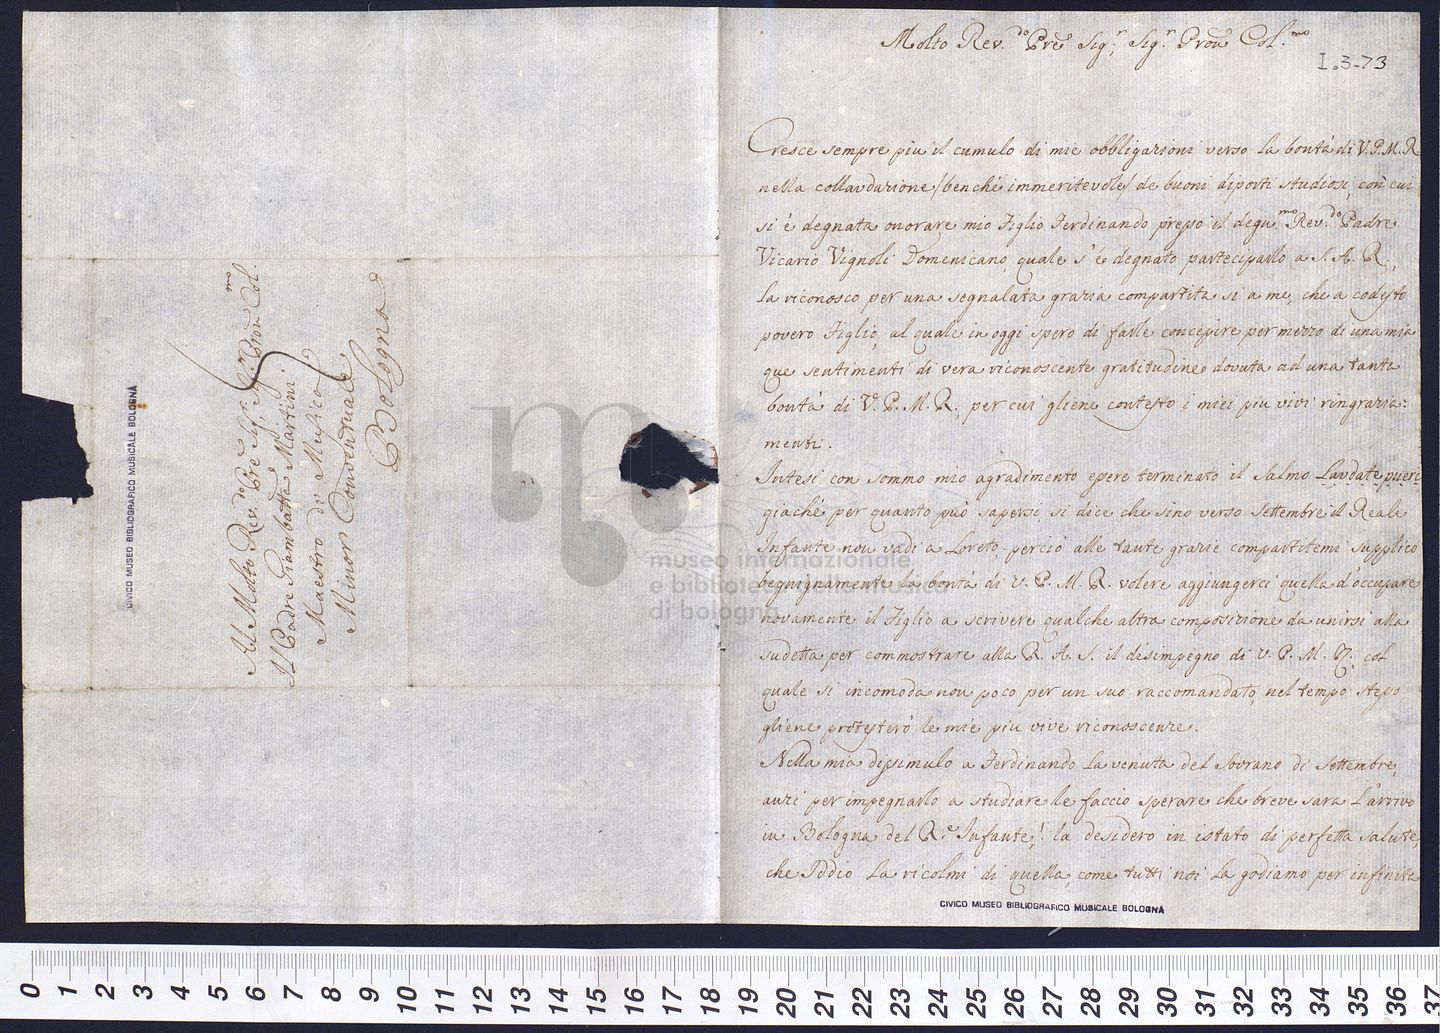 Al Molto Rev.do Pre Sig.r, Sig.r Pron Col.mo
Il Padre Giambatta Martini
Maestro di Musica
Minor Conventuale
Bologna
CIVICO MUSEO BIBLIOGRAFICO MUSICALE BOLOGNA
Molto Rev.do Pre Sig.r, Sig.r Pron Col.mo
I.3-73
Cresce sempre piu il cumulo di mie obbligazioni verso la bontà di V.P.M.R
nella collaudazione /benché immeritevole/ de buoni diporti studiosi, con cui
si è degnata onorare mio Figlio Ferdinando presso il degn.mo Rev.do Padre
Vicario Vignoli Domenicano, quale s'è degnato parteciparlo a S. A. R.,
la riconosco per una segnalata grazia compartita si a me, che a codesto
povero Figlio, al quale in oggi spero di farle concepire per mezzo di una mia
que sentimenti di vera riconoscente gratitudine dovuta ad una tanta
bontà di V. P. M. R. per cui gliene contesto i miei piu vivi ringrazia=
menti.
Intesi con sommo mio agradimento essere terminato il Salmo Laudate pueri
giaché per quanto può sapersi, si dice che sino verso Settembre il Reale
Infante non vadi a Loreto, perciò alle tante grazie compartitemi supplico
begnignamente la bontà di V. P. M. R. volere aggiungerci quella d'occupare
novamente il Figlio a scrivere qualche altra composizione da unirsi alla
sudetta per commostrare alla R. A. S. il disimpegno di V. P. M. R. col
quale si incomoda non poco per un suo raccomandato, nel tempo stesso
gliene protesterò le mie piu vive riconoscenze.
Nella mia dissimulo a Ferdinando la venuta del Sovrano di Settembre,
anzi per impegnarlo a studiare le faccio sperare che breve sara l'arrivo
in Bologna del R.e Infante! la desidero in istato di perfetta salute,
che Iddio la ricolmi di quella, come tutti noi la godiamo per infinita
CIVICO MUSEO BIBLIOGRAFICO MUSICALE BOLOGNA
museo internazionale
e biblioteca della musica
di bologna
0 1 2 3 4 5 6 7 8 9 10 11 12 13 14 15 16 17 18 19 20 21 22 23 24 25 26 27 28 29 30 31 32 33 34 35 36 37